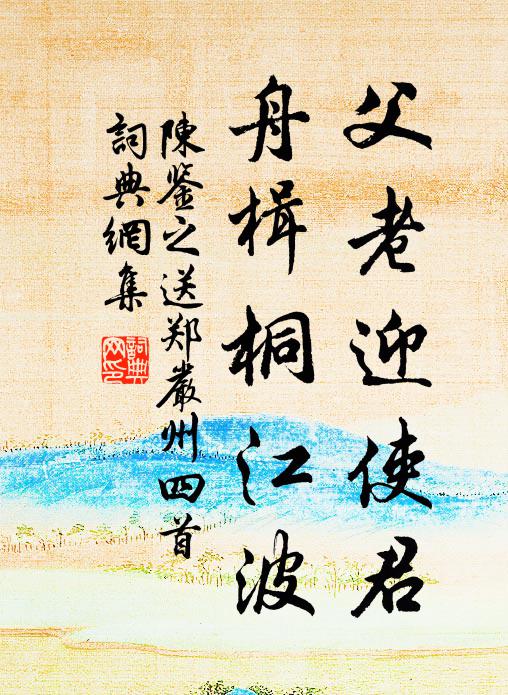 父老迎使君
舟楫桐江波
陳鉴之送郑嚴州四首
詞典網集
詞典网印